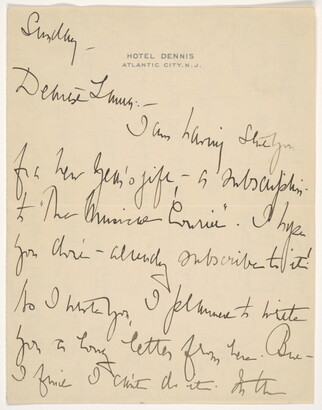 Sunday –
HOTEL DENNIS
ATLANTIC CITY, N.J.
Dearest
I am having sent you
for a New Year's gift – a subscription
to "The Musical Courier". I hope
you don't – already subscribe to it!
As I wrote you, I planned to write
you a long letter from here. But –
I find I can't do it. In the